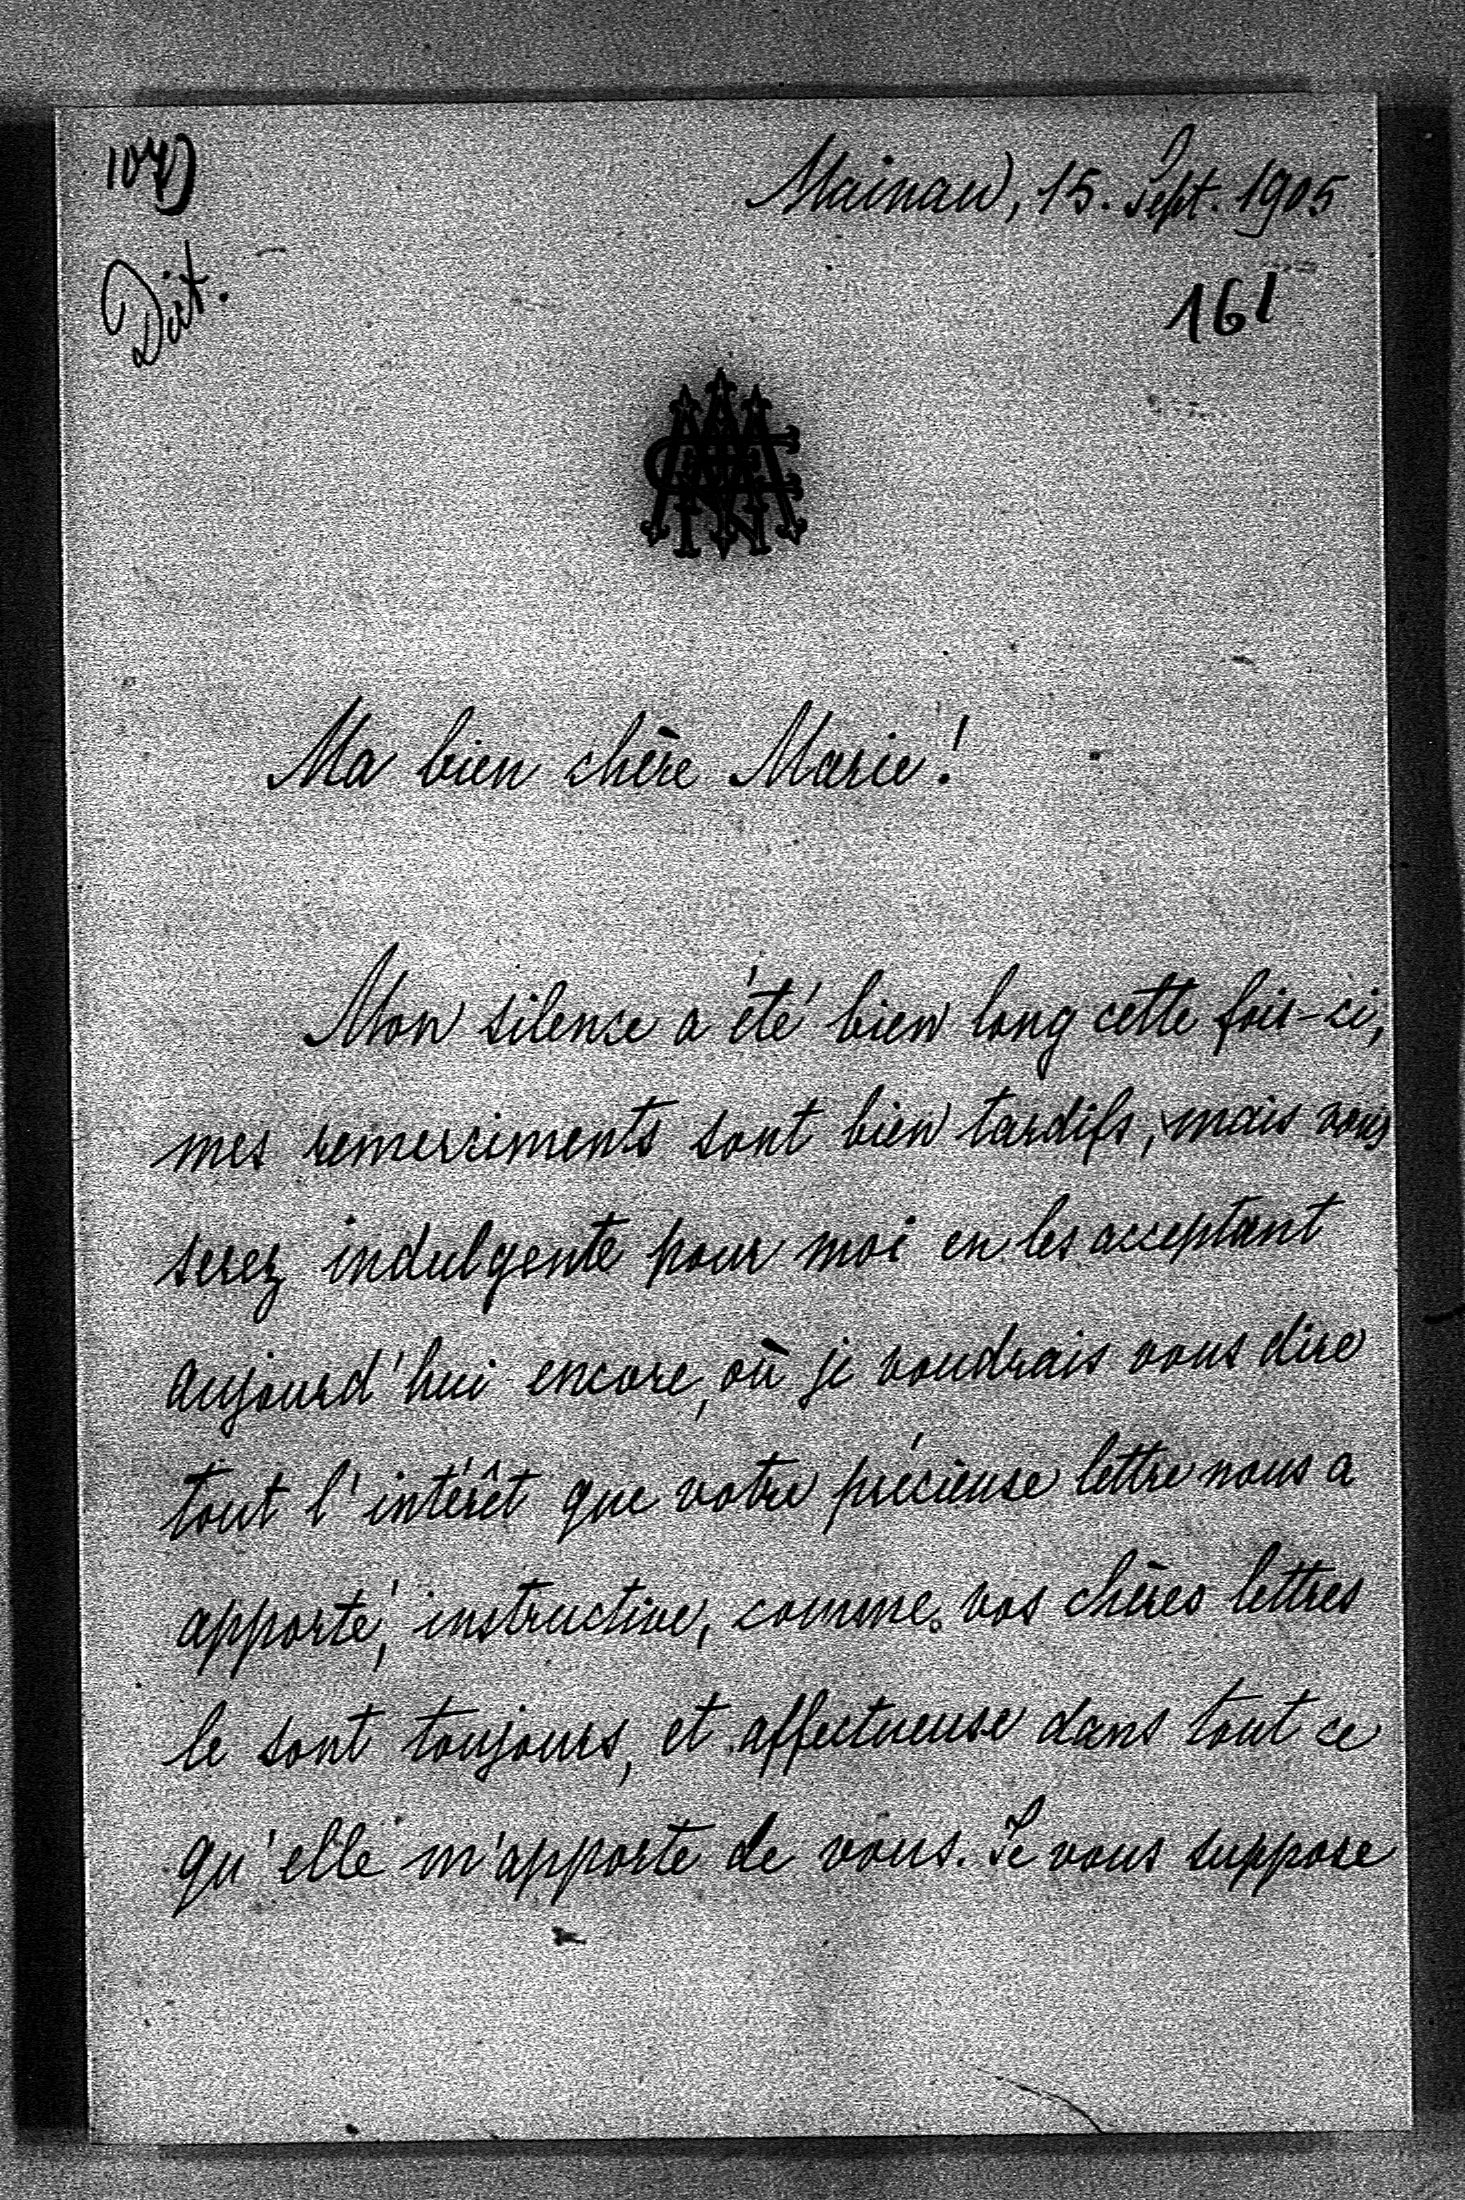 107)
Mainau, 15. Sept. 1905
Dict.
161
Ma bien chère Marie!
Mon silence a été bien long cette fois-ci,
mes remerciments sont bien tardifs, mais vous
serez indulgente pour moi en les acceptant
aujourd'hui encore, où je voudrais vous dire
tout l'intérêt que votre précieuse lettre nous a
apporté, instructive, comme vos chères lettres
le sont toujours, et affectueuse dans tout ce
qu'elle m'apporte de vous. Je vous suppose